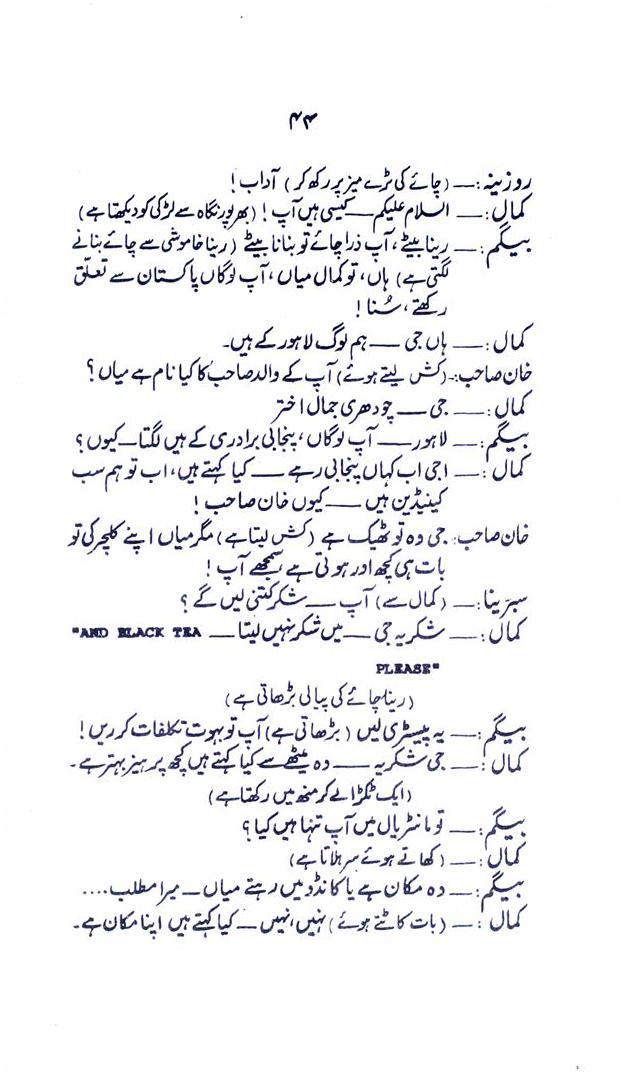 ۴۴
روزینہ:— (چائے کی ٹرے میز پر رکھ کر) آداب!
کمال:— السلام علیکم — کیسی ہیں آپ! (بھرپور نگاہ سے لڑکی کو دیکھتا ہے)
بیگم:— رینا بیٹے، آپ ذرا چائے تو بنانا بیٹے (رینا خاموشی سے چائے بنانے
لگتی ہے) ہاں، تو کمال میاں، آپ لوگاں پاکستان سے تعلّق
رکھتے، سُنا!
کمال:— ہاں جی — ہم لوگ لاہور کے ہیں۔
خان صاحب:۔ (کش لیتے ہوئے) آپ کے والد صاحب کا کیا نام ہے میاں؟
کمال:— جی — چودھری جمال اختر
بیگم:— لاہور — آپ لوگاں، پنجابی برادری کے ہیں لگتا — کیوں؟
کمال:— اجی اب کہاں پنجابی رہے — کیا کہتے ہیں، اب تو ہم سب
کینیڈین ہیں — کیوں خان صاحب!
خان صاحب: جی وہ تو ٹھیک ہے (کش لیتا ہے) مگر میاں اپنے کلچر کی تو
بات ہی کچھ اور ہوتی ہے، سمجھے آپ!
سبرینا:— (کمال سے) آپ — شکر کتنی لیں گے؟
کمال:— شکریہ جی — میں شکر نہیں لیتا — "AND BLACK TEA
PLEASE"
(رینا چائے کی پیالی بڑھاتی ہے)
بیگم:— یہ پیسٹری لیں (بڑھاتی ہے) آپ تو بہوت تکلفات کر ریں!
کمال:— جی شکریہ — وہ میٹھے سے کیا کہتے ہیں کچھ پرہیز بہتر ہے۔
(ایک ٹکڑا لے کر منھ میں رکھتا ہے)
بیگم:— تو مانٹریال میں آپ تنہا ہیں کیا؟
کمال:— (کھاتے ہوئے سر ہلاتا ہے)
بیگم:— وہ مکان ہے یا کانڈو میں رہتے میاں — میرا مطلب....
کمال:— (بات کاٹتے ہوئے) نہیں، نہیں — کیا کہتے ہیں اپنا مکان ہے۔